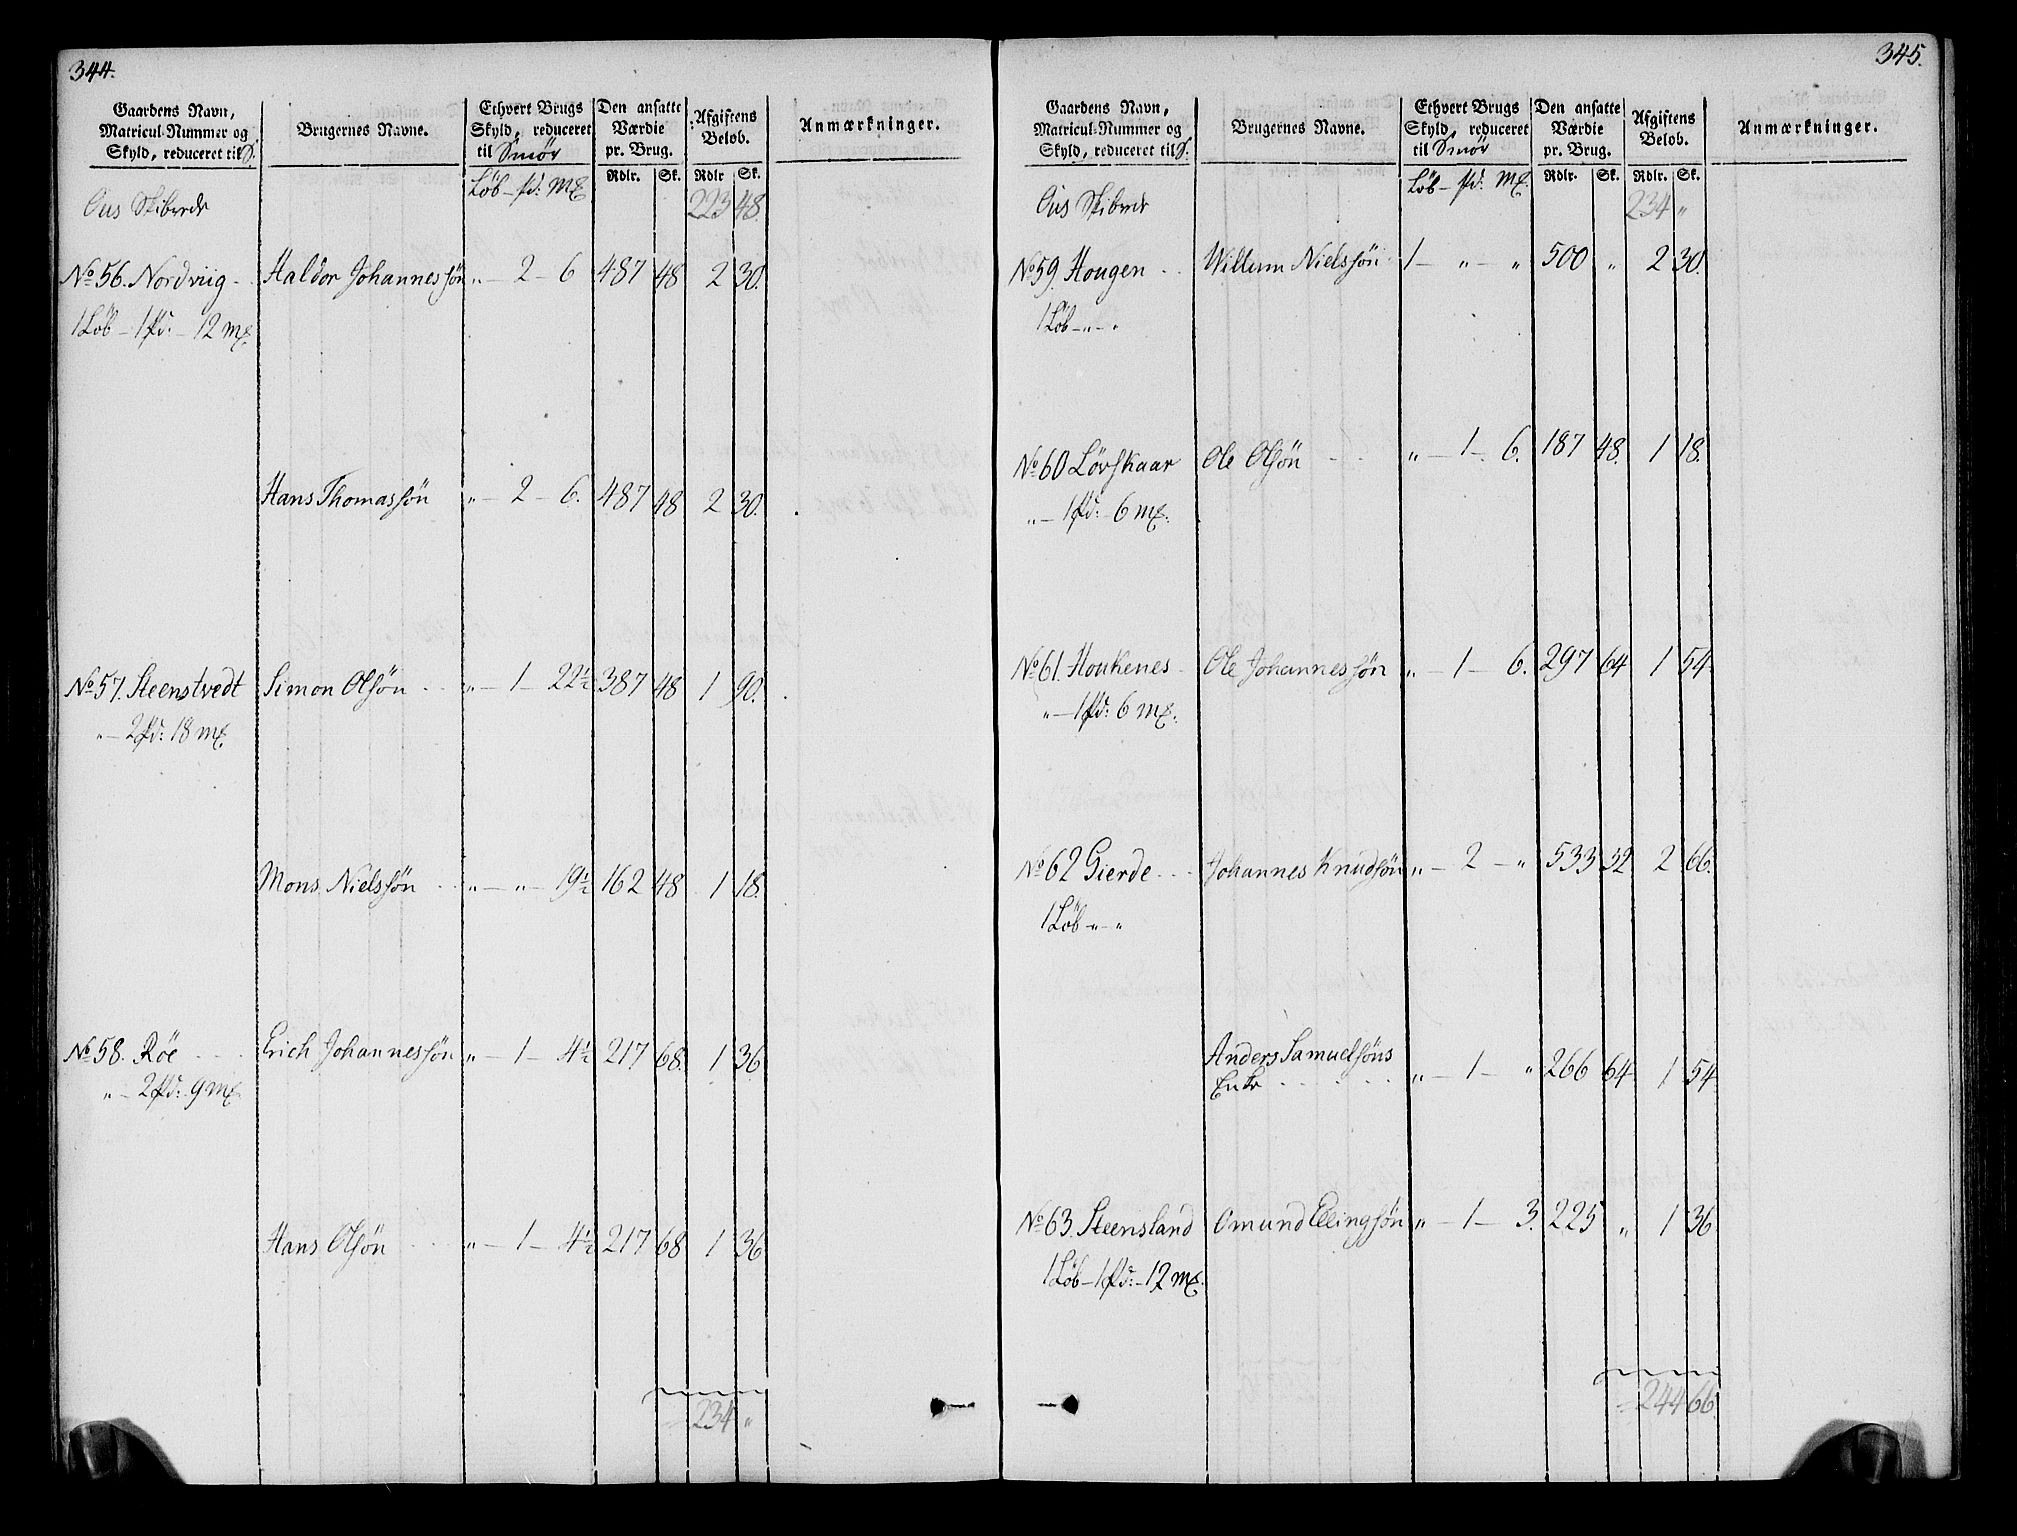 344.
Gaardens Navn,
Matricul-Nummer og
Skyld, reduceret til S.
Brugernes Navne.
Ethvert Brugs
Skyld, reduceret
til Smør
Den ansatte
Værdie
pr. Brug.
Afgiftens
Beløb.
Anmærkninger.
Løb – pd: mk
Rdlr. Sk. Rdlr Sk.
Ous Skibrede 223 48.
No 56. Nordviig - Haldor Johannessøn „ – 2 – 6 487 48 2 30.
1 Løb – 1 pd: – 12 mk.
Hans Thomassøn „ – 2 – 6. 487 48 2 30.
No 57. Steenstvedt Simon Olsøn „ – 1 – 22½ 387 48 1 90.
„ – 2 pd: 18 mk.
Mons Nielssøn „ – „ – 19½ 162 48 1 18.
No 58. Röe Erich Johannessøn „ – 1 – 4½ 217 68. 1 36
„ – 2 pd: 9 mk
Hans Olsøn „ – 1 – 4½ 217 68 1 36
234 „
345.
Gaardens Navn,
Matricul-Nummer og
Skyld, reduceret til S:
Brugernes Navne.
Ethvert Brugs
Skyld, reduceret
til Smør
Den ansatte
Værdie
pr. Brug.
Afgiftens
Beløb.
Anmærkninger.
Løb – pd: mk.
Rdlr. Sk. Rdlr. Sk.
Ous Skibrede 234 „
No 59. Hougen Willum Nielssøn 1 – „ – „ 500 „ 2 30.
1 Løb – „ – „
No 60 Lövskaar Ole Olsøn „ – 1 – 6. 187 48. 1 18.
„ – 1 pd: – 6 mk.
No 61. Houkenes Ole Johannessøn „ – 1 – 6. 297 64 1 54
„ – 1 pd: 6 mk.
No 62 Gierde Johannes Knudsøn „ – 2 – „ 533 32 2 66.
1 Løb „ – „
Anders Samuelsøns
Enke „ – 1 – „ 266 64 1 54
No 63. Steensland Omund Ellingsøn „ – 1 – 3. 225 „ 1 36
1 Løb – 1 pd: – 12 mk.
244 66.